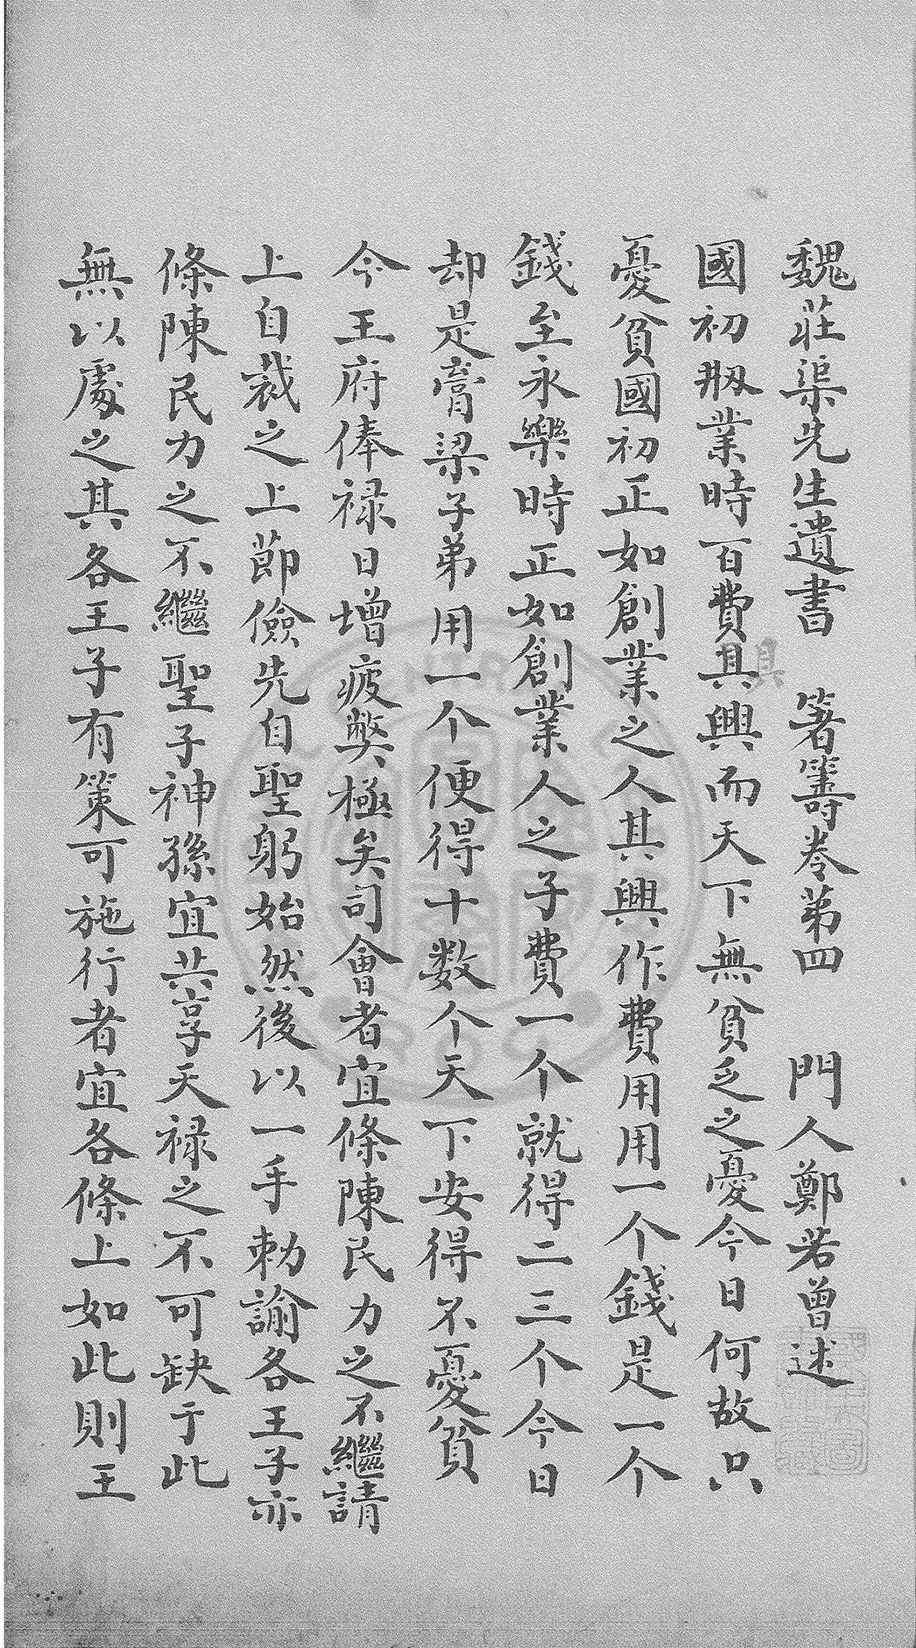 魏莊渠先生遺書　箸籌卷第四　門人鄭若曾述
國初剏業時百費其興而天下無貧乏之憂今日何故只
憂貧國初正如創業之人其興作費用用一个錢是一个
錢至永樂時正如創業人之子費一个就得二三个今日
却是膏梁子弟用一个便得十数个天下安得不憂貧
今王府俸禄日增疲獘極矣司會者宜條陳民力之不繼請
上自裁之上節儉先自聖躬始然後以一手勅諭各王子亦
條陳民力之不繼聖子神孫宜共享天禄之不可缺于此
無以處之其各王子有策可施行者宜各條上如此則王
具